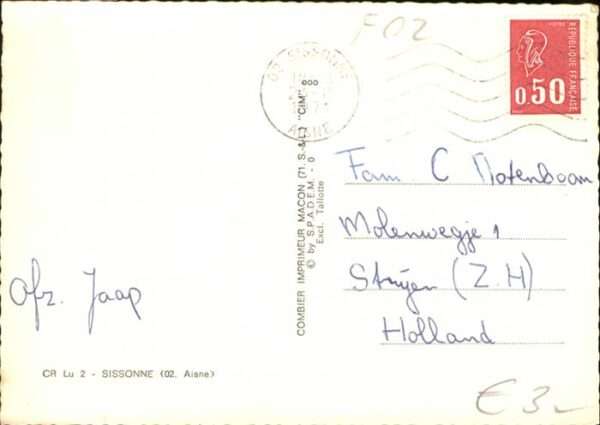 F02
RÉPUBLIQUE FRANÇAISE
0.50
02 SISSONNE
AISNE
COMBIER IMPRIMEUR MACON (71. S.-&-L.) "CIM"
© by S.P.A.D.E.M. - 0
Excl. Tallotte
Fam C Notenboom
Molenwegje 1
Strijen (Z.H)
Holland
Afz. Jaap
CR Lu 2 - SISSONNE (02. Aisne)
€ 3,-